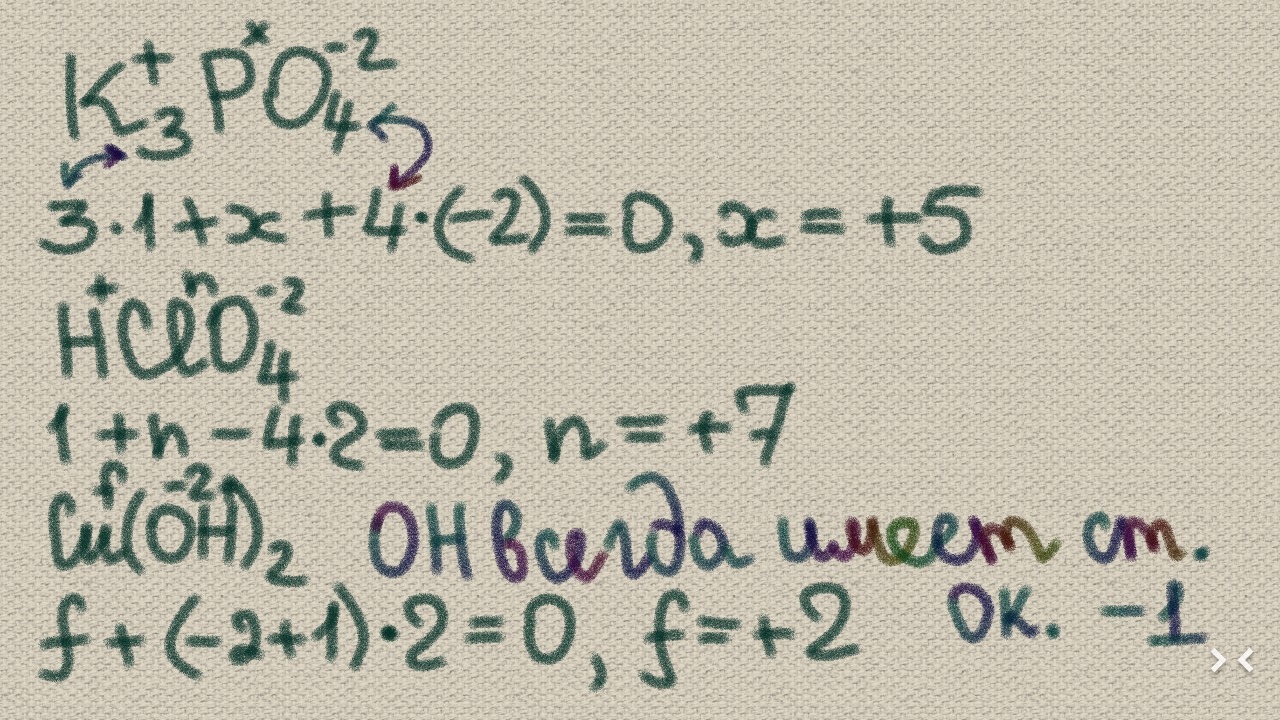 K⁺₃PˣO₄⁻²
3·1+x+4·(-2)=0, x=+5
H⁺ClⁿO₄⁻²
1+n-4·2=0, n=+7
Cuᶠ(O⁻²H⁺)₂ OH всегда имеет ст.
ок. -1
f+(-2+1)·2=0, f=+2